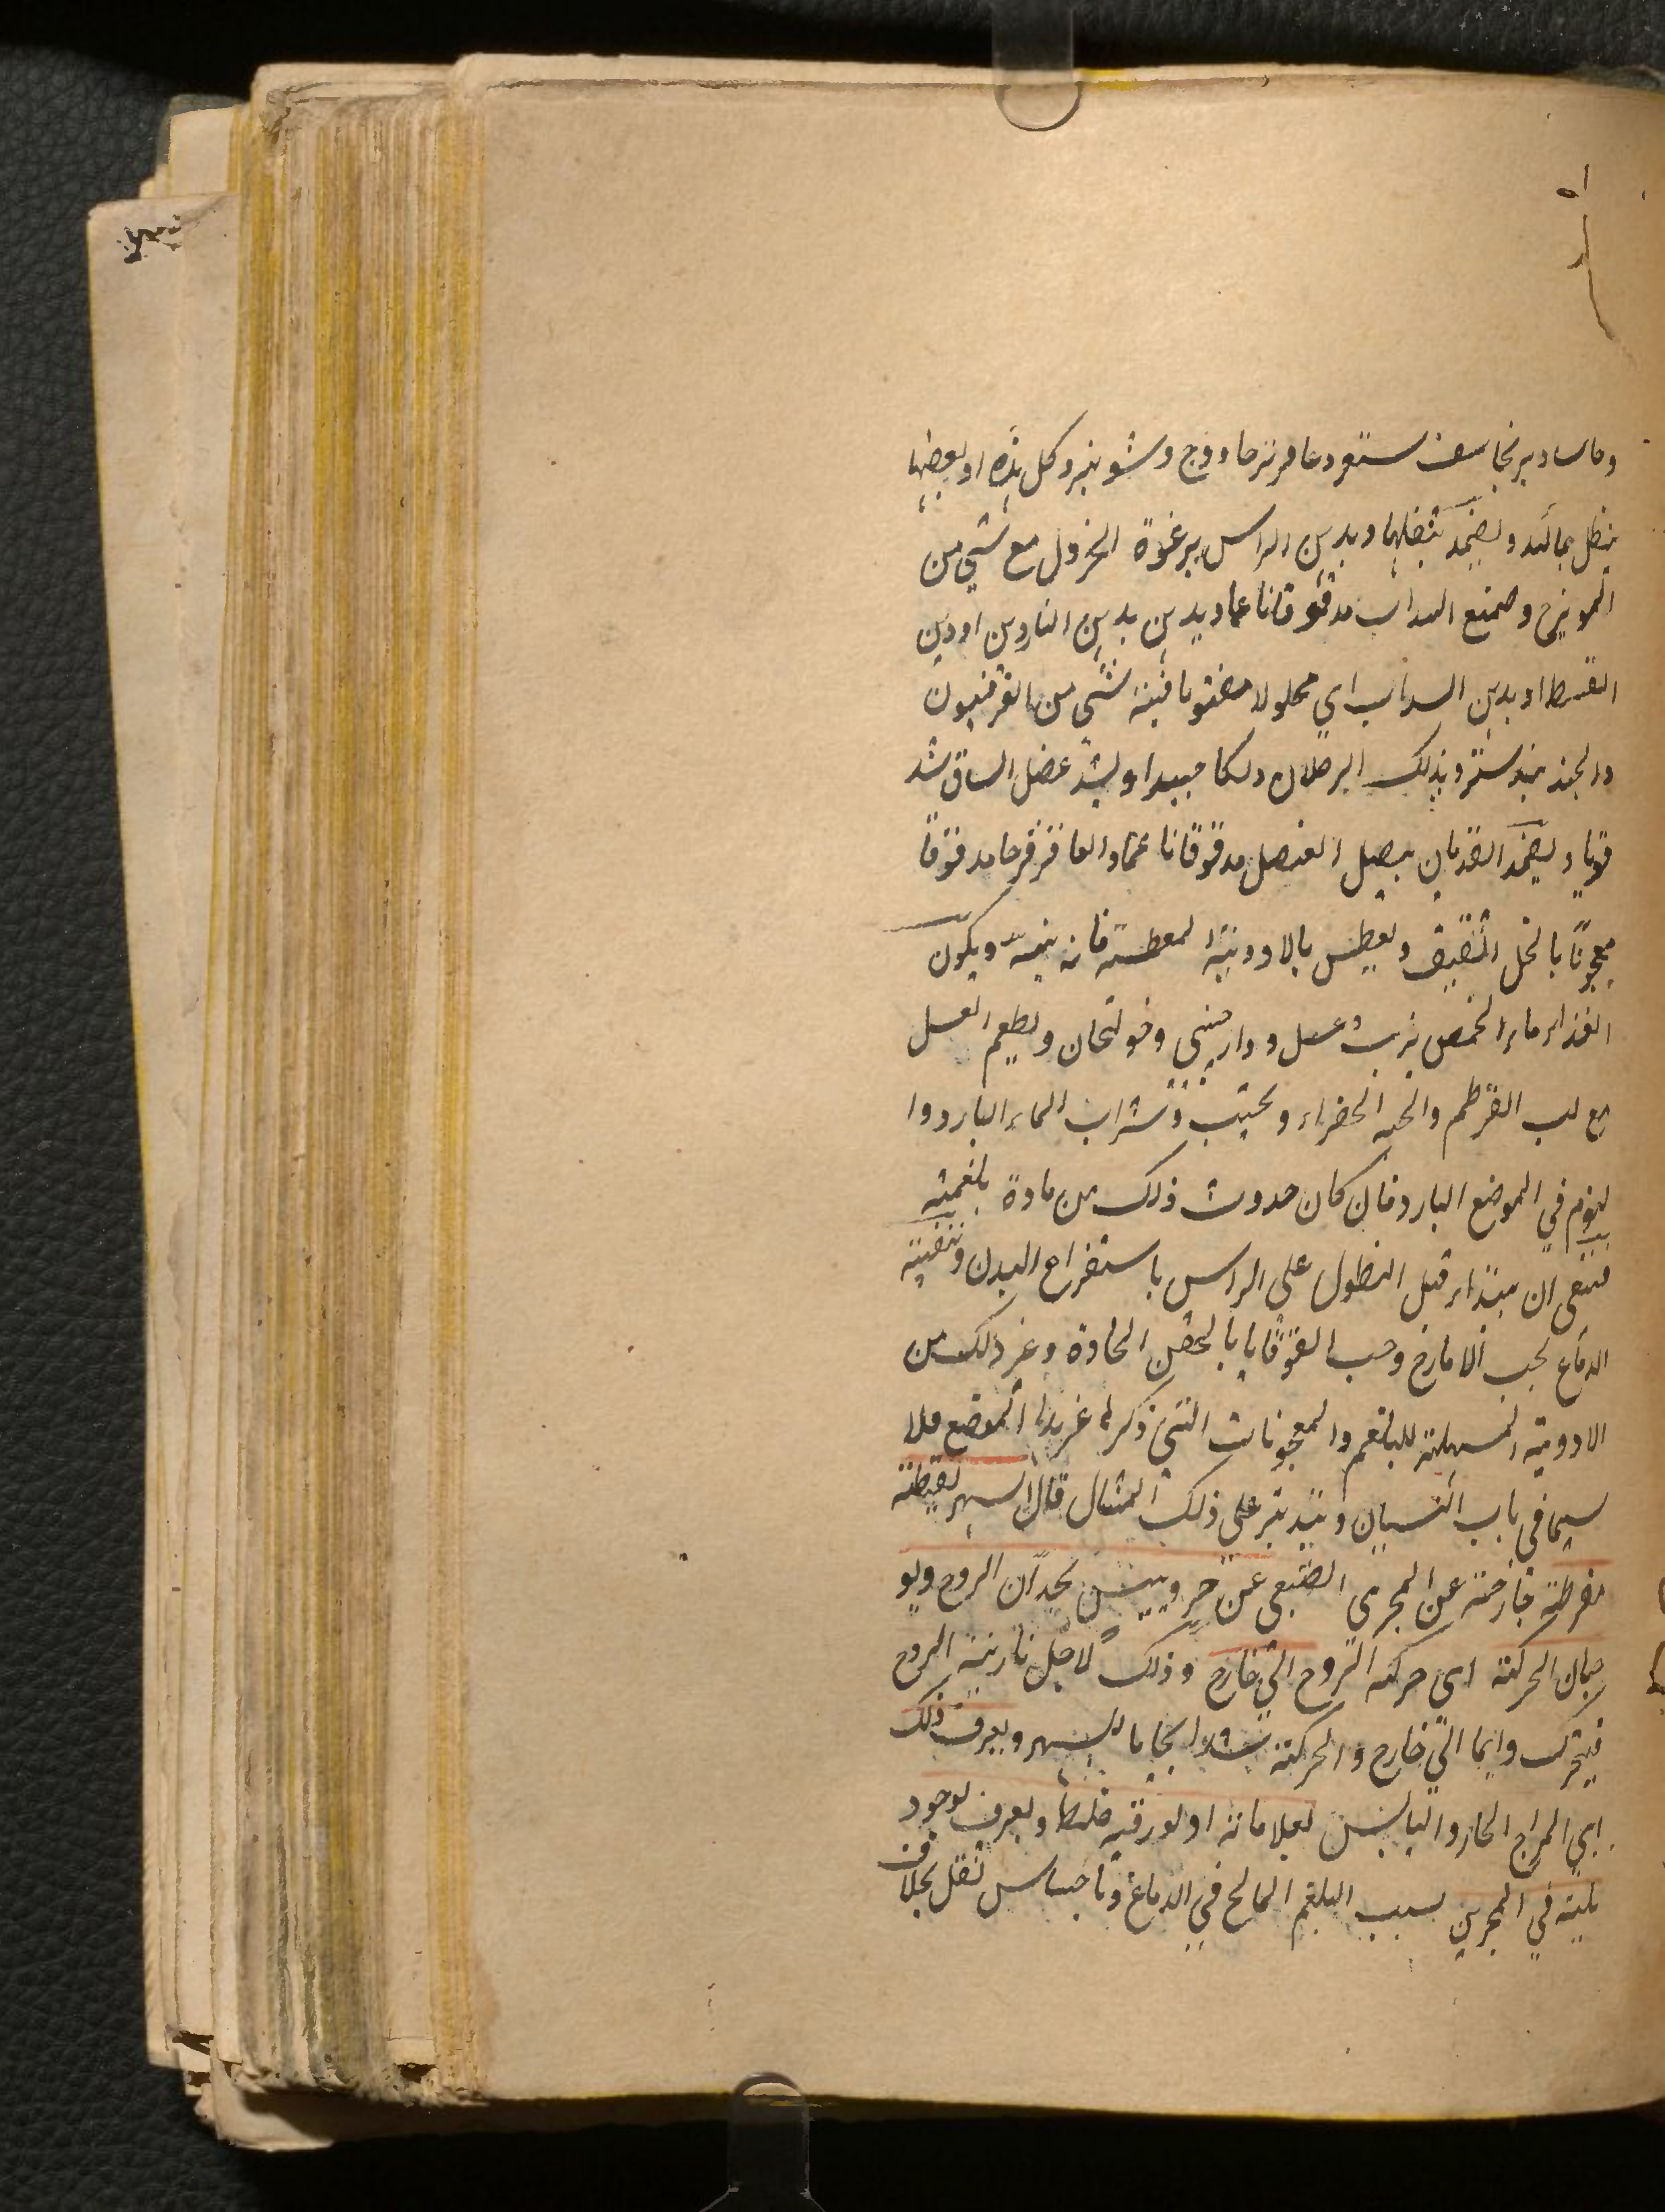 وحاسا وبرنجاسف سستعر وعاقرقرحا ووج وشونيز وكل هذه او بعضها
ينطل بمائه ويضمد بثفلها ويدهن الراس برغوة الخردل مع شي من
المويزج وصمغ السداب مدقوقا ناعما ويدهن بدهن الناردين او دهن
القسط او بدهن السداب اي محلولا مفتوتا فيه شي من الفرفيون
والجندبيدستر ويدلك الرجلان دلكا جيدا ويشد عضل الساق شد
قويا ويضمد القدمان ببصل العنصل مدقوقا ناعما والعاقرقرحا مدقوقا
معجونا بالخل الثقيف ويعطس بالادوية المعطسة فانه ينبه ويكون
الغذاء ماء الحمص بزيت وعسل ودارصيني وخولنجان ويطعم العسل
مع لب القرطم والحبه الخضراء ويجتنب وشراب الماء البارد وا
لنوم في الموضع البارد فان كان حدوث ذلك من مادة بلغمية
فينبغي ان يبتداء قبل النطول على الراس باستفراغ البدن وتنقية
الدماغ بحب الايارج وحب القوقايا بالحقن الحادة وغير ذلك من
الادوية المسهلة للبلغم والمعجونات التي ذكر لها غير هذا الموضع ملا
سيما في باب النسيان ويتدبر على ذلك المثال قال السهر يقظة
مفرطة خارجة عن المجرى الطبعي عن حر ويبس يحدان الروح ويو
جبان الحركة اي حركه الروح الي خارج وذلك لاجل نارية الروح
فيتحرك دايما الي خارج والحركة اشد ايجابا للسهر ويعرف ذلك
اي المزاج الحار واليابس لعلاماته او لبورقية خلط ويعرف بوجود
بلة في المنخرين بسبب البلغم المالح في الدماغ وباحساس ثقل بخلاف